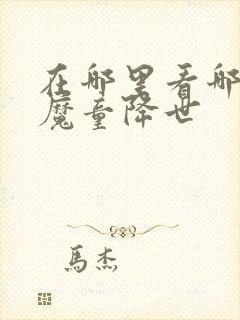 在哪里看哪
魔童降世
馬杰